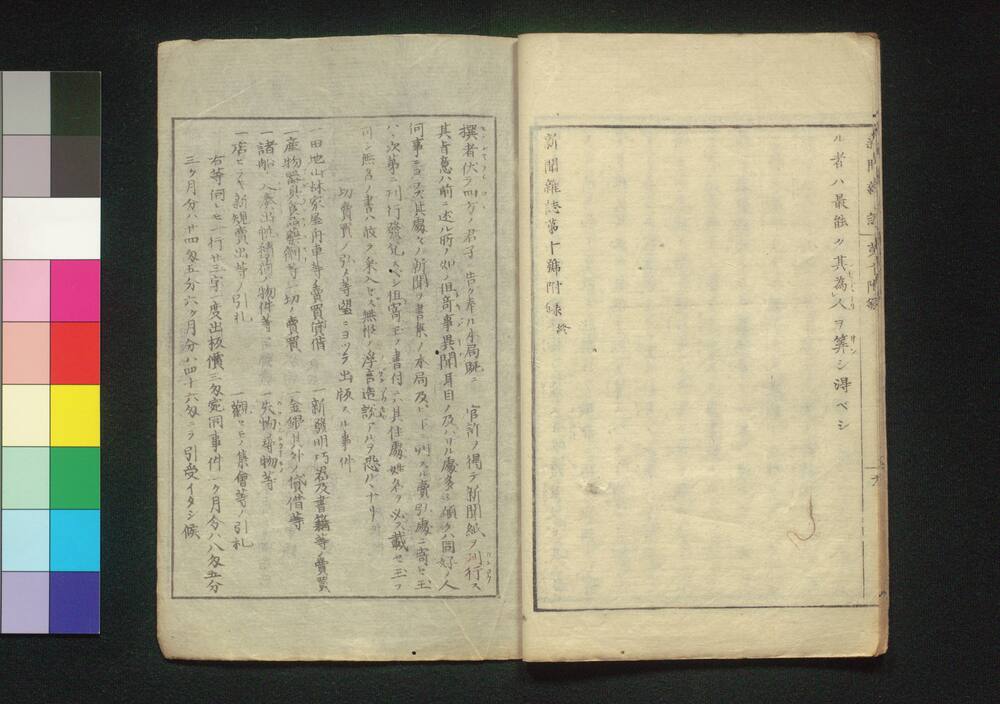 ル者ハ最能ク其為人ヲ算シ得ベシ
新聞雑誌第十號附録終
撰者伏テ四方ノ君子ニ告ク奉ル本局既ニ 官許ヲ得テ新聞紙ヲ刊行ス
其旨意ハ前ニ述ル所ノ如ノ但奇事異聞耳目ノ及バザル處多シ願クハ同好ノ人
何事ニヨラズ其處々ノ新聞ヲ書集メ本局及ヒ下ニ列スル賣引處ニ寄セ玉
ハヽ次第ニ刊行發兌スベシ但寄玉フ書付ハ其住處姓名ヲ必ズ載セ玉フ
ベシ無名ノ書ハ敢テ采入セズ無根ノ浮言造説アルヲ恐ルヽナリ
切賣買ノ弘メ等望ニヨツテ出版スル事件
一田地山林家屋舟車等ノ賣買貸借
一新發明巧器及書籍等ノ賣買
一産物器具食品藥劑等一切ノ賣買
一金銀其外ノ貸借等
一諸船ノ入港出帆積荷ノ物件等
一失物尋物等
一店ビラキ新規賣出等ノ引札
一觀セモノ集會等ノ引札
右等何レモ一行廿三字一度出板價三匁宛同事件一ク月分ハ八匁五分
三ケ月分ハ廿四匁五分六ケ月分ハ四十六匁ニテ引受イタシ候